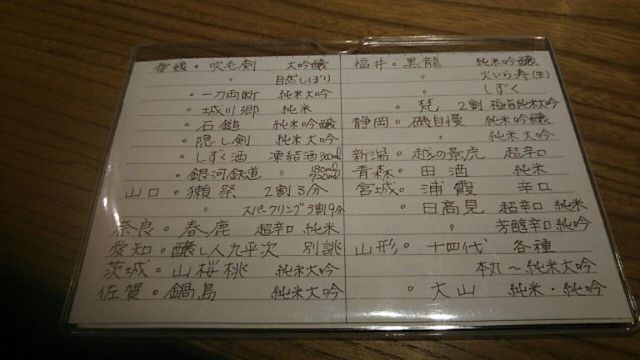 愛媛・吹毛剣 大吟醸
〃 自然しぼり
・一刀両断 純米大吟
・城川郷 純米
・石鎚 純米吟醸
・隠し剣 純米大吟
・しずく酒 凍結酒300ml
・銀河鉄道 180ml 720ml
山口・獺祭 2割3分
〃 スパークリング5割9分
奈良・春鹿 超辛口 純米
愛知・醸し人九平次 別誂
茨城・山桜桃 純米大吟
佐賀・鍋島 純米大吟
福井・黒龍 純米吟醸
〃 火いら寿(生)
〃 しずく
・梵 2割 極旨純米大吟
静岡・磯自慢 純米吟醸
〃 純米大吟
新潟・越の景虎 超辛口
青森・田酒 純米
宮城・浦霞 辛口
・日高見 超辛口 純米
〃 芳醇辛口 純吟
山形・十四代 各種
本丸〜純米大吟
・大山 純米・純吟